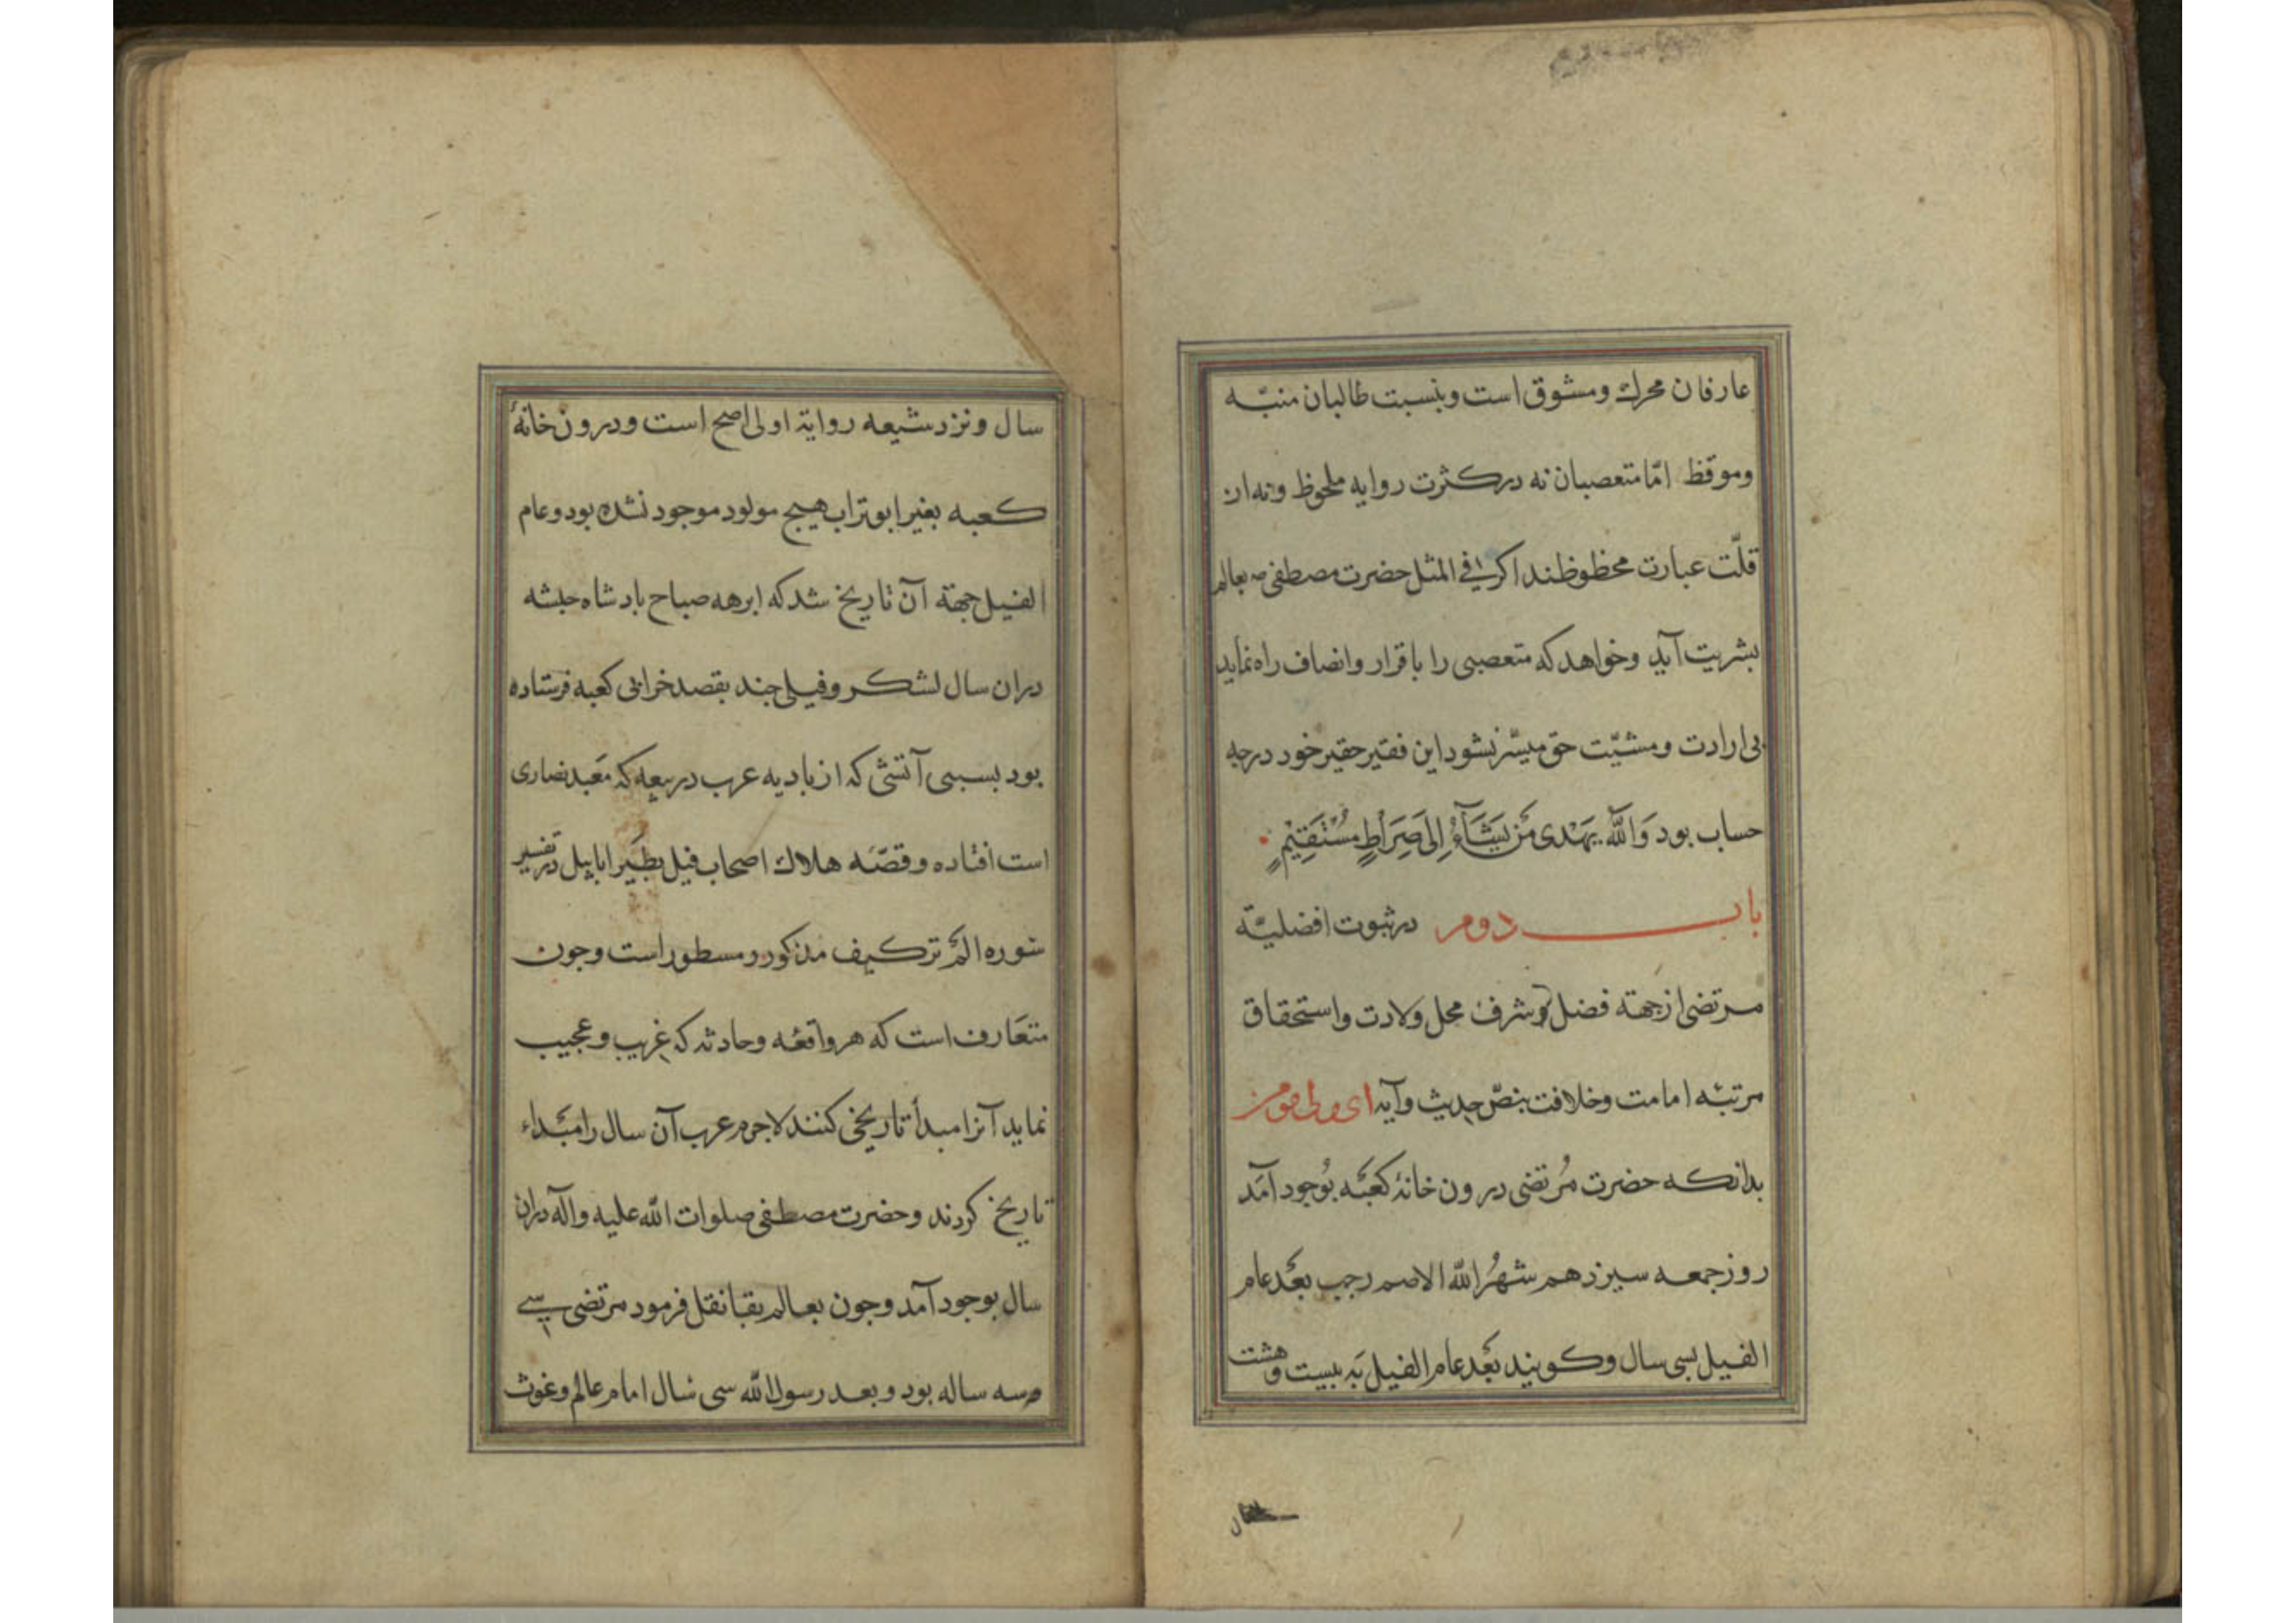 عارفان محرك ومشوق است وبنسبت طالبان منبّه
وموقظ امّا متعصبان نه در كثرت روايه ملحوظ ونه از
قلّت عبارت محظوظند اكر في المثل حضرت مصطفى ص بعالم
بشريت آيد وخواهد كه متعصبى را باقرار وانصاف راه نمايد
بى ارادت ومشيّت حق ميسّر نشود اين فقير حقير خود درچه
حساب بود وَاللّه يَهْدى مَن يَشَآءُ اِلىَ صِرَاطٍ مُسْتَقِيْمٍ
باب دوم در ثبوت افضليّة
مرتضى از جهة فضل وشرف محل ولادت واستحقاق
مرتبه امامت وخلافت بنصّ حديث وآيه
بدانكه حضرت مُرتضى درون خانهٔ كعبَه بوُجود آمَد
روز جمعه سيزدهم شهرُ اللّه الاصم رجب بعْد عام
الفيل بسى سال وكويند بعْد عام الفيل بَه بيست و هشت
سال ونزد شيعه رواية اولى اصح است ودرون خانهٔ
كعبه بغير ابو تراب هيچ مولود موجود نشده بود وعام
الفيل جهة آن تاريخ شد كه ابرهه صباح بادشاه حبشه
دران سال لشكر وفيلى جند بقصد خرابى كعبه فرستاده
بود بسببى آتشى كه از باديه عرب در بيعه كه مَعبد نصارى
است افتاده وقصّه هلاك اصحاب فيل بطَير ابابيل در تفسير
سوره الَم تر كيف مذكور ومسطور است وجون
متعَارف است كه هر واقعَه وحادثه كه غريب وعجيب
نمايد آنرا مبدأ تاريخى كنند لاجرم عرب آن سال را مبَداء
تاريخ كردند وحضرت مصطفى صلوات اللّه عليه وآله دران
سال بوجود آمد وجون بعالم بقا نقل فرمود مرتضى سى
وسه ساله بود وبعد رسول اللّه سى سال امام عالم وغوث